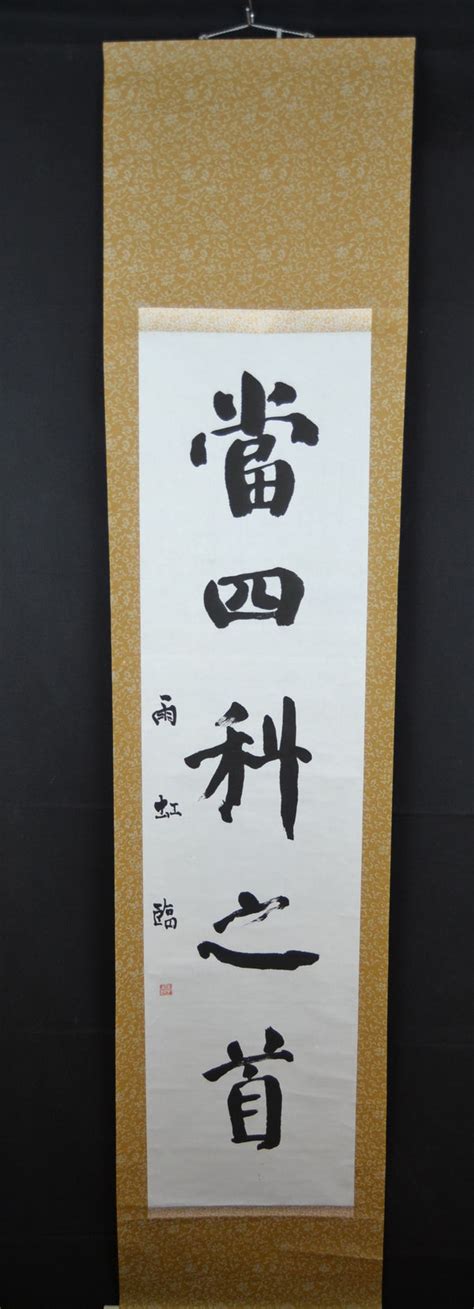 當四科之首
雨虹臨